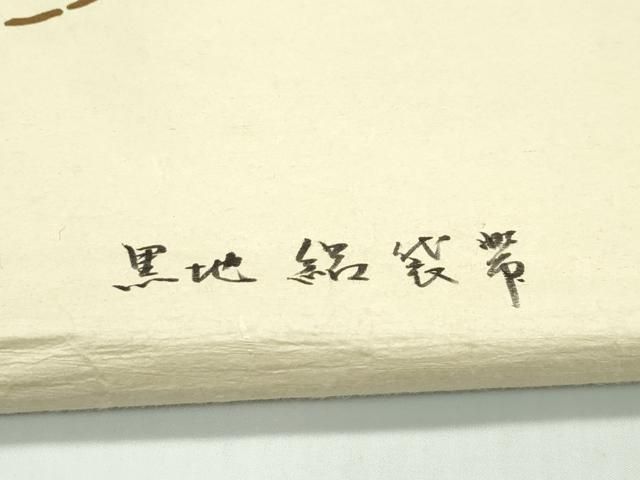 黒地 絽 袋帶